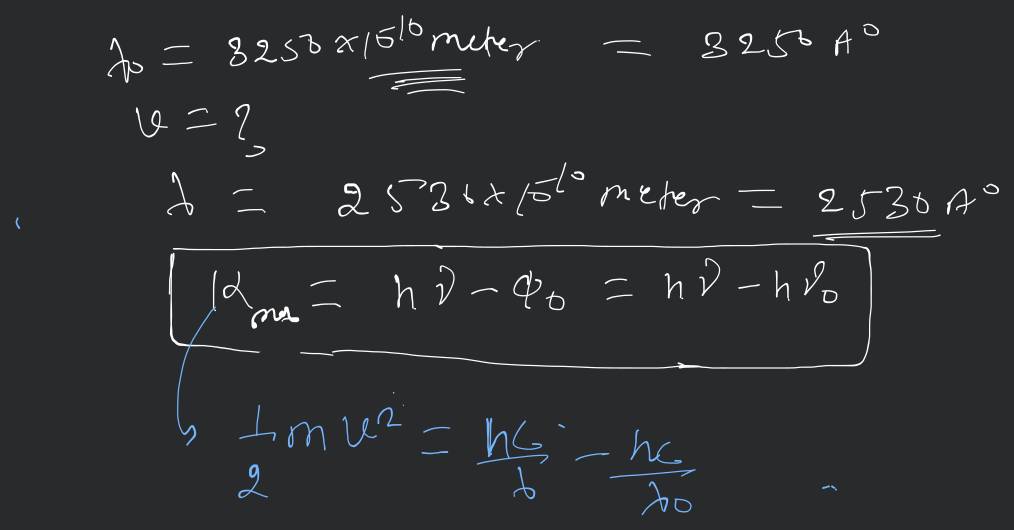 λ₀ = 3250 × 10⁻¹⁰ meter = 3250 A°
v = ?
λ = 2530 × 10⁻¹⁰ meter = 2530 A°
K max = hν − φ₀ = hν − hν₀
1/2 mv² = hc/λ − hc/λ₀